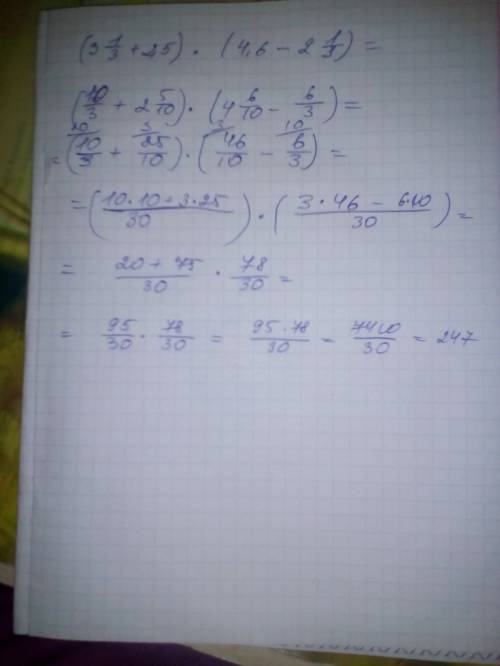 (3 1/3 + 2,5) · (4,6 − 2 1/3) =
(10/3 + 2 5/10) · (4 6/10 − 6/3) =
10 3 3 10
= (10/3 + 25/10) · (46/10 − 6/3) =
= (10·10+3·25/30) · (3·46 − 6·10/30) =
= 20+75/30 · 78/30 =
= 95/30 · 78/30 = 95·78/30 = 7410/30 = 247